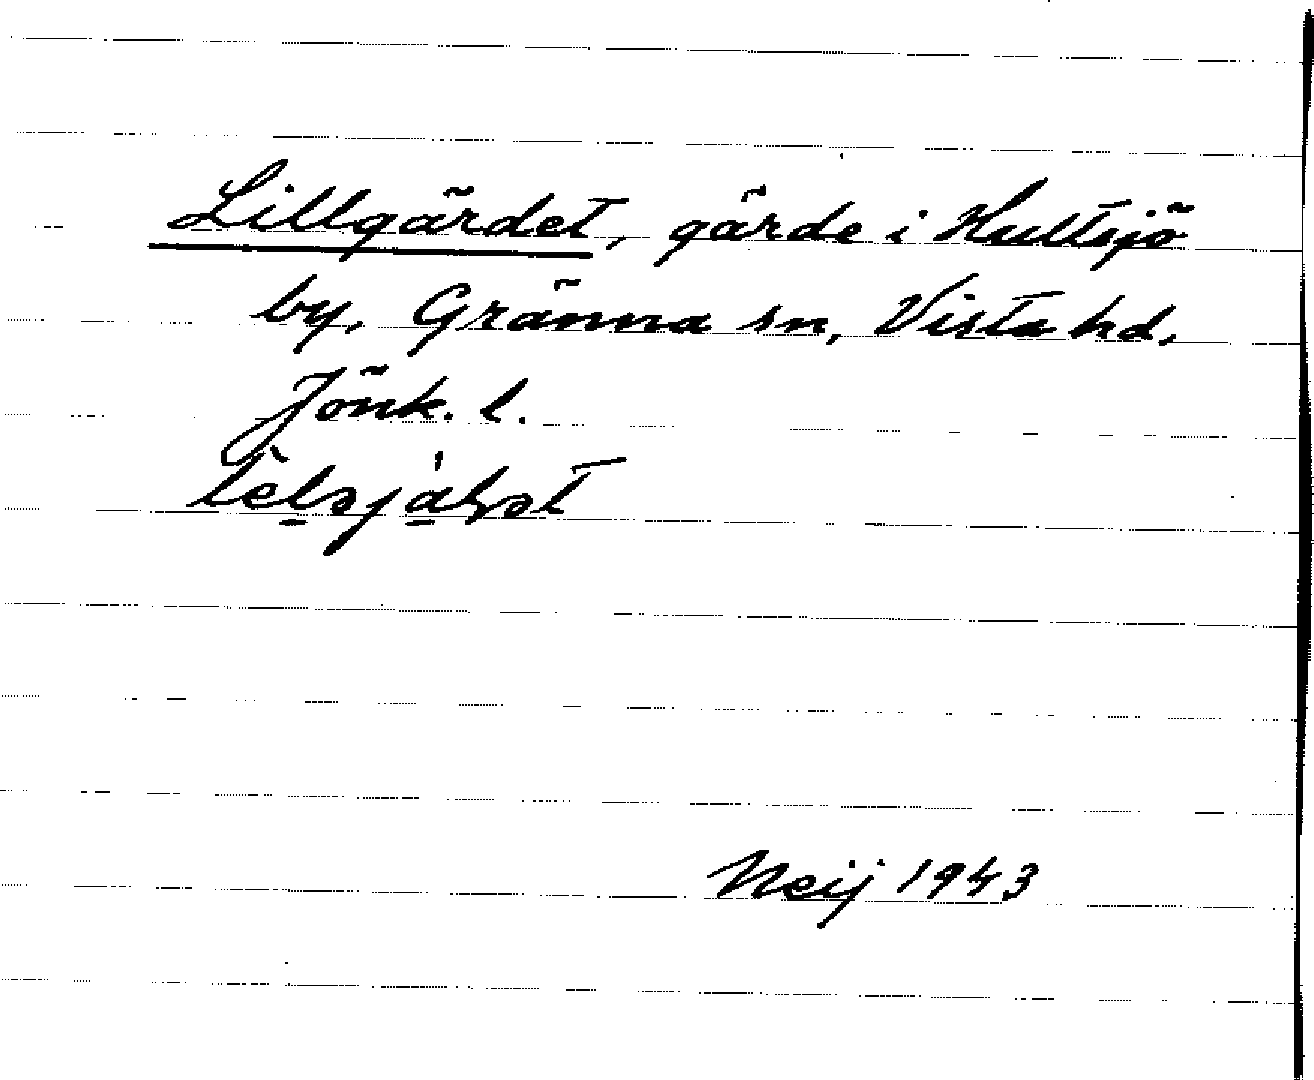 Lillgärdet, gärde i Hultsjö
by, Gränna sn, Vista hd,
Jönk. l.
Neij 1943